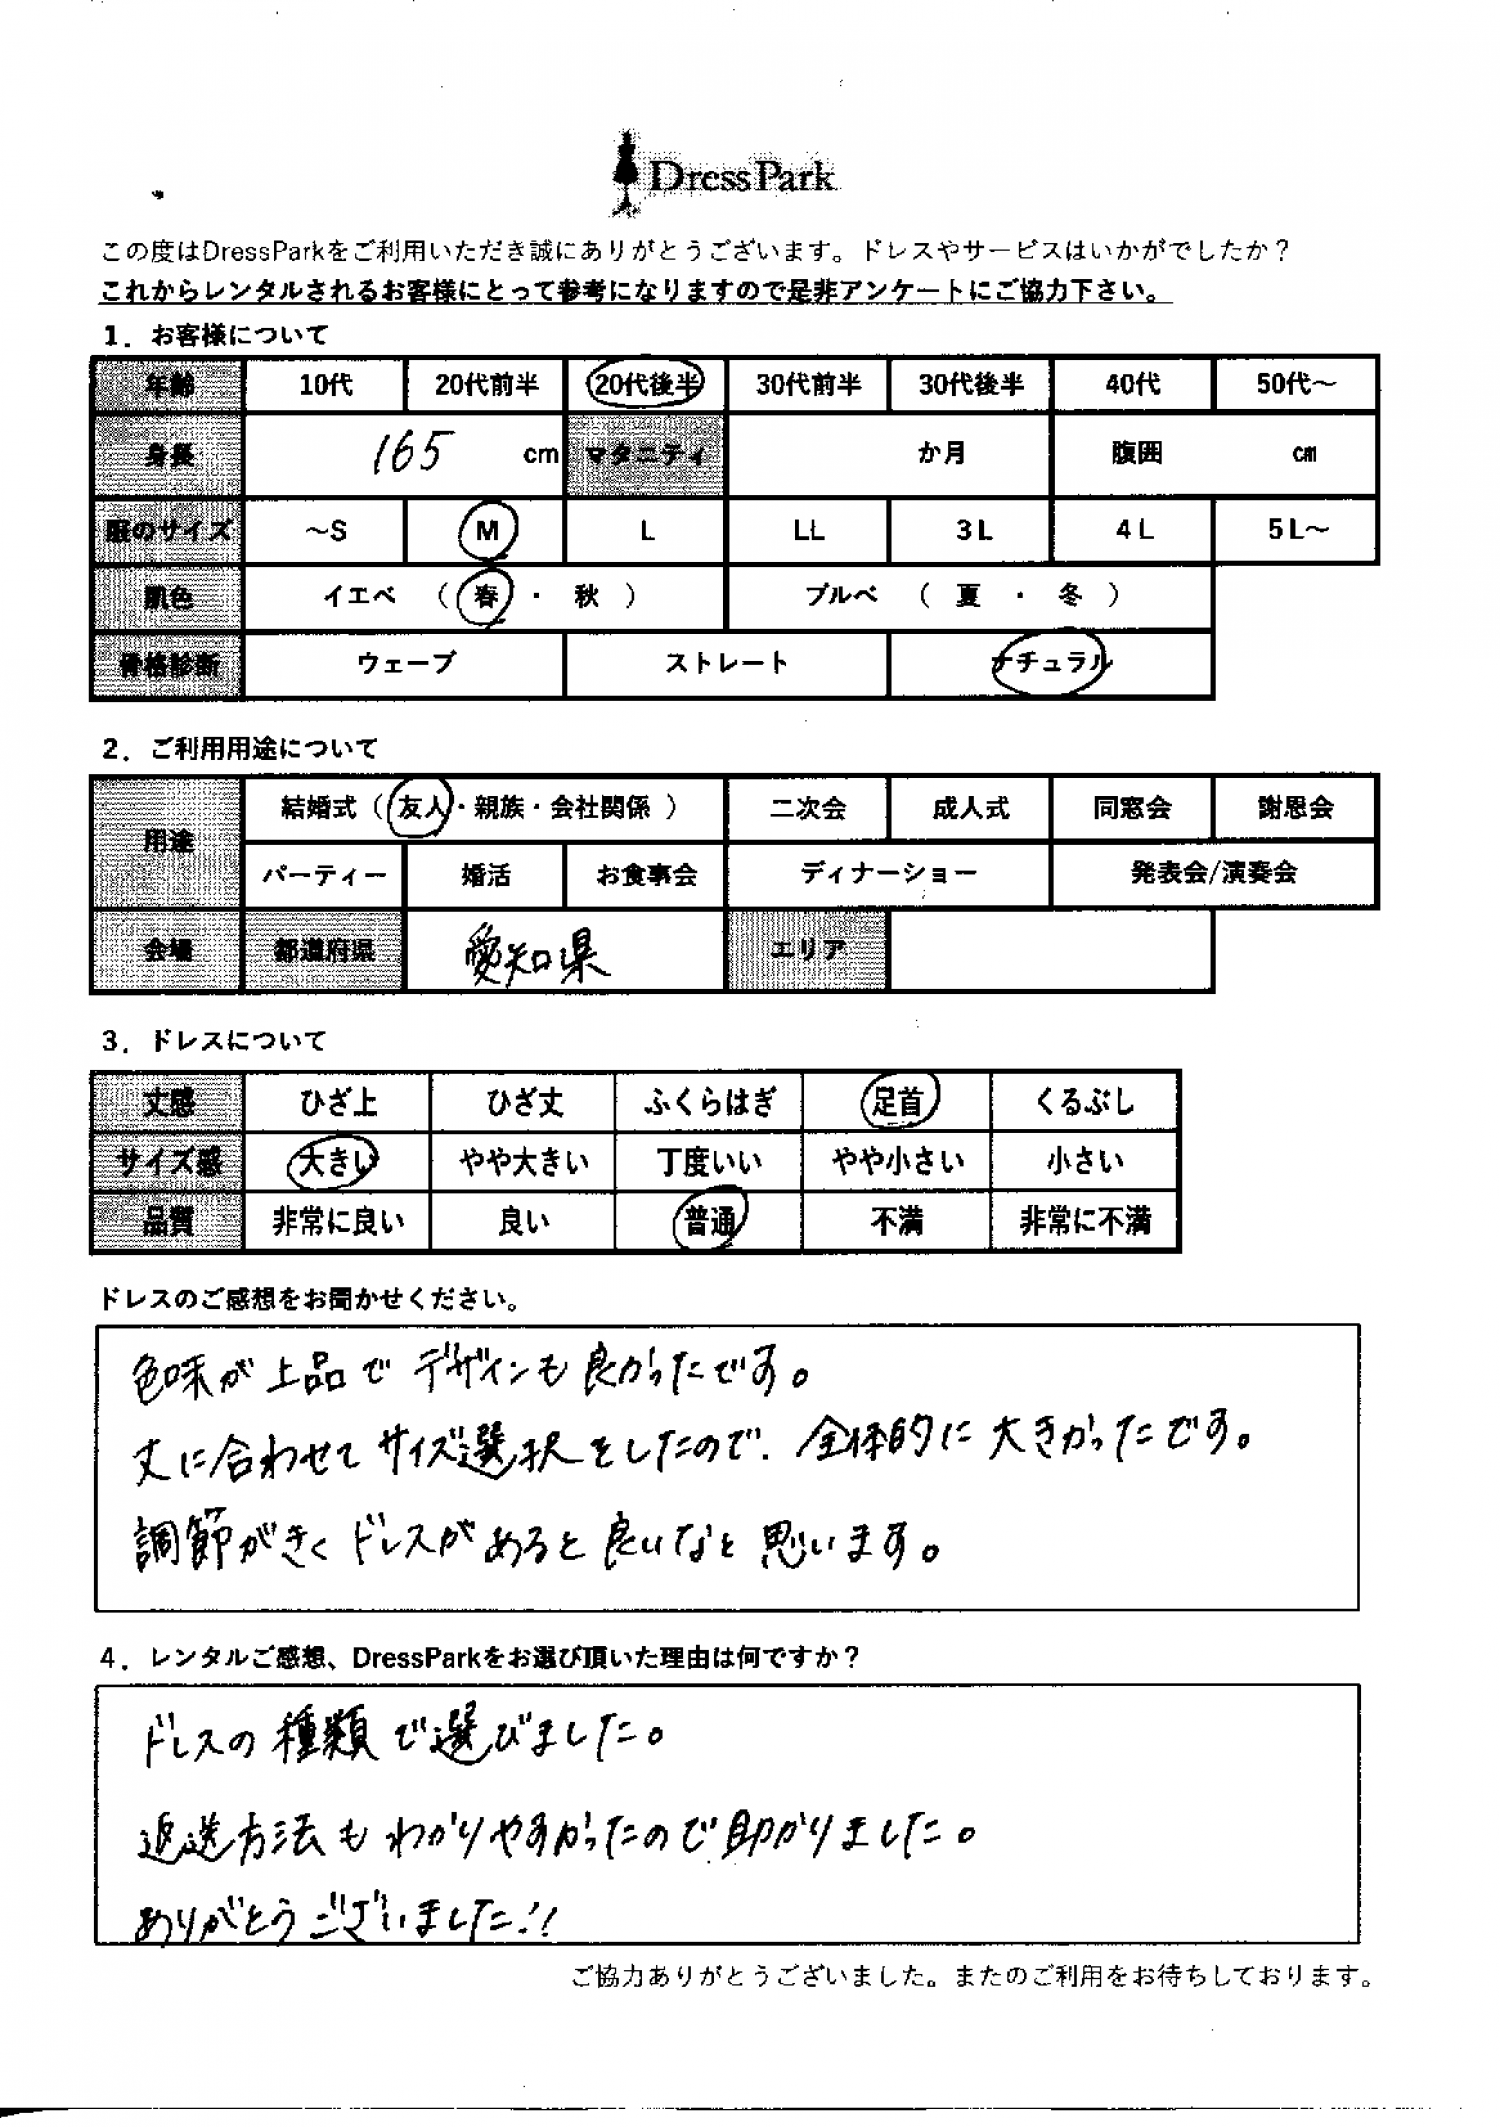 DressPark
この度はDressParkをご利用いただき誠にありがとうございます。ドレスやサービスはいかがでしたか？
これからレンタルされるお客様にとって参考になりますので是非アンケートにご協力下さい。
1．お客様について
年齢 10代 20代前半 20代後半 30代前半 30代後半 40代 50代～
身長 165 cm マタニティ か月 腹囲 cm
服のサイズ ～S M L LL 3L 4L 5L～
肌色 イエベ （ 春 ・ 秋 ） ブルベ （ 夏 ・ 冬 ）
骨格診断 ウェーブ ストレート ナチュラル
2．ご利用用途について
用途 結婚式（ 友人・親族・会社関係 ） 二次会 成人式 同窓会 謝恩会
パーティー 婚活 お食事会 ディナーショー 発表会/演奏会
会場 都道府県 愛知県 エリア
3．ドレスについて
丈感 ひざ上 ひざ丈 ふくらはぎ 足首 くるぶし
サイズ感 大きい やや大きい 丁度いい やや小さい 小さい
品質 非常に良い 良い 普通 不満 非常に不満
ドレスのご感想をお聞かせください。
色味が上品でデザインも良かったです。
丈に合わせてサイズ選択をしたので、全体的に大きかったです。
調節がきくドレスがあると良いなと思います。
4．レンタルご感想、DressParkをお選び頂いた理由は何ですか？
ドレスの種類で選びました。
返送方法もわかりやすかったので助かりました。
ありがとうございました!!
ご協力ありがとうございました。またのご利用をお待ちしております。